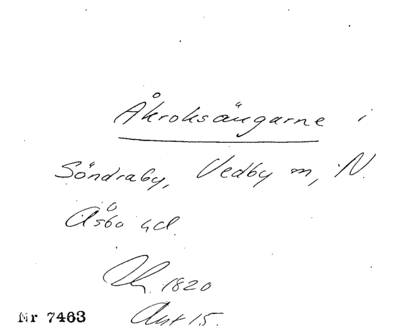 Åkroksängarne i
Söndraby, Vedby m, N.
Åsbo hd.
1820
Akt 15.
Nr 7463